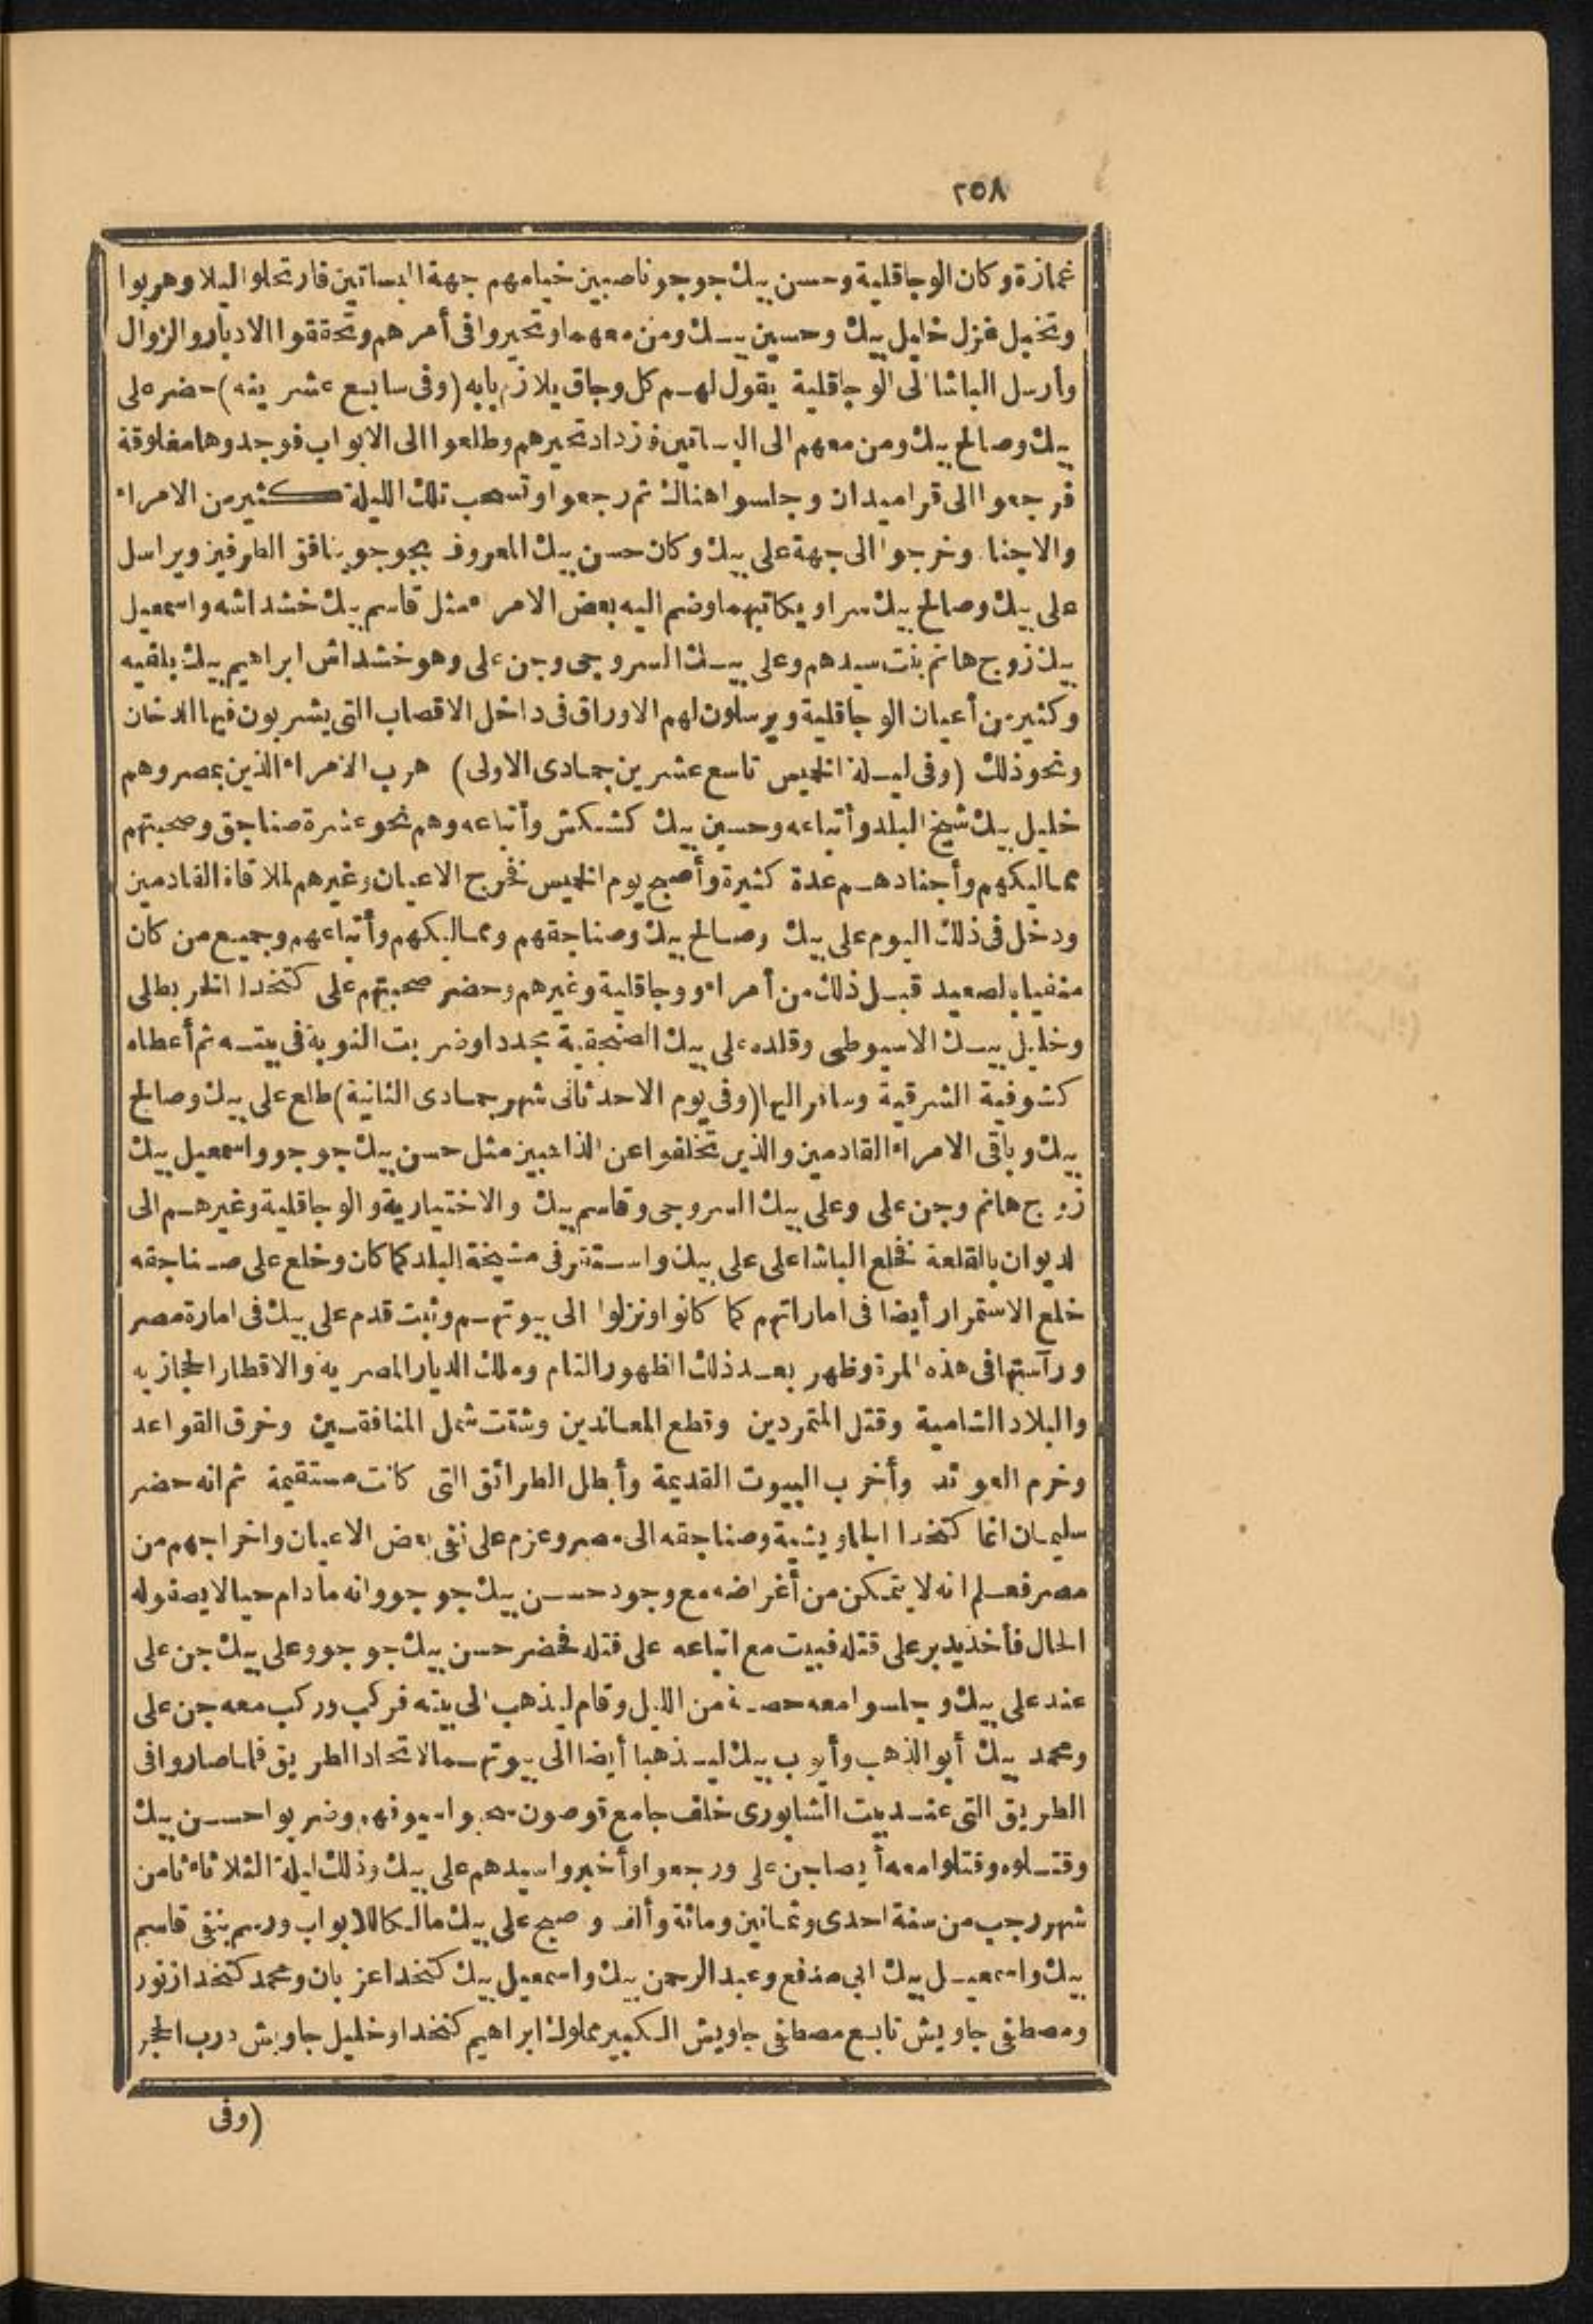 ٢٥٨
غمازة وكان الوجاقلية وحسن بيك جوجو ناصبين خيامهم جهة البساتين فارتحلوا ليلا وهربوا
وتخبل غزل خليل بيك وحسين بيك ومن معهما وتحيروا فى أمرهم وتحققوا الادبار والزوال
وأرسل الباشا الى الوجاقلية يقول لهم كل وجاق يلازم بابه (وفى سابع عشرينه) حضر على
بيك وصالح بيك ومن معهم الى البساتين فزداد تحيرهم وطلعوا الى الابواب فوجدوها مغلوقة
فرجعوا الى قراميدان وجلسوا هناك ثم رجعوا وتسحب تلك الليلة كثير من الامراء
والاجناد وخرجوا الى جهة على بيك وكان حسن بيك المعروف بجوجو ينافق الطرفين ويراسل
على بيك وصالح بيك سرا ويكاتبهما وضم اليه بعض الامراء مثل قاسم بيك خشداشه واسمعيل
بيك زوج هانم بنت سيدهم وعلى بيك السروجى وجن على وهو خشداش ابراهيم بيك بلفيه
وكثير من أعيان الوجاقلية ويرسلون لهم الاوراق فى داخل الاقصاب التى يشربون فيها الدخان
ونحو ذلك (وفى ليلة الخميس تاسع عشرين جمادى الاولى) هرب الامراء الذين بمصر وهم
خليل بيك شيخ البلد وأتباعه وحسين بيك كشكش وأتباعه وهم نحو عشرة صناجق وصحبتهم
مماليكهم وأجنادهم عدة كثيرة وأصبح يوم الخميس فخرج الاعيان وغيرهم لملاقاة القادمين
ودخل فى ذلك اليوم على بيك وصالح بيك وصناجقهم ومماليكهم وأتباعهم وجميع من كان
منفيا بالصعيد قبل ذلك من أمراء ووجاقلية وغيرهم وحضر صحبتهم على كتخدا الخربطلى
وخليل بيك الاسيوطى وقلده على بيك الصنجقية مجددا وضربت النوبة فى بيته ثم أعطاه
كشوفية الشرقية وسافر اليها (وفى يوم الاحد ثانى شهر جمادى الثانية) طلع على بيك وصالح
بيك وباقى الامراء القادمين والذين تخلفوا عن الذاهبين مثل حسن بيك جوجو واسمعيل بيك
زوج هانم وجن على وعلى بيك السروجى وقاسم بيك والاختيارية والوجاقلية وغيرهم الى
الديوان بالقلعة فخلع الباشا على على بيك واستقر فى مشيخة البلد كما كان وخلع على صناجقه
خلع الاستمرار أيضا فى اماراتهم كما كانوا ونزلوا الى بيوتهم وثبت قدم على بيك فى امارة مصر
ورآستها فى هذه المرة وظهر بعد ذلك الظهور التام وملك الديار المصرية والاقطار الحجازيه
والبلاد الشامية وقتل المتمردين وقطع المعاندين وشتت شمل المنافقين وخرق القواعد
وخرم العوائد وأخرب البيوت القديمة وأبطل الطرائق التى كانت مستقيمة ثم انه حضر
سليمان اغا كتخدا الجاويشية وصناجقه الى مصر وعزم على نفى بعض الاعيان واخراجهم من
مصر فعلم انه لا يتمكن من أغراضه مع وجود حسن بيك جوجو وانه مادام حيا لا يصفو له
الحال فأخذ يدبر على قتله فبيت مع اتباعه على قتله فحضر حسن بيك جوجو وعلى بيك جن على
عند على بيك وجلسوا معه حصة من الليل وقام ليذهب الى بيته فركب وركب معه جن على
ومحمد بيك أبو الذهب وأيوب بيك ليذهبا أيضا الى بيوتهما لاتحاد الطريق فلما صاروا فى
الطريق التى عند بيت الشابورى خلف جامع قوصون سحبوا سيوفهم وضربوا حسن بيك
وقتلوه وقتلوا معه أيضا جن على ورجعوا وأخبروا سيدهم على بيك وذلك ليلة الثلاثاء ثامن
شهر رجب من سنة احدى وثمانين ومائة وألف وصبح على بيك مالكا للابواب ورسم بنفى قاسم
بيك واسمعيل بيك ابى مدفع وعبد الرحمن بيك واسمعيل بيك كتخدا عزبان ومحمد كتخدا زنور
ومصطفى جاويش تابع مصطفى جاويش الكبير مملوك ابراهيم كتخدا وخليل جاويش درب الحجر
(وفى